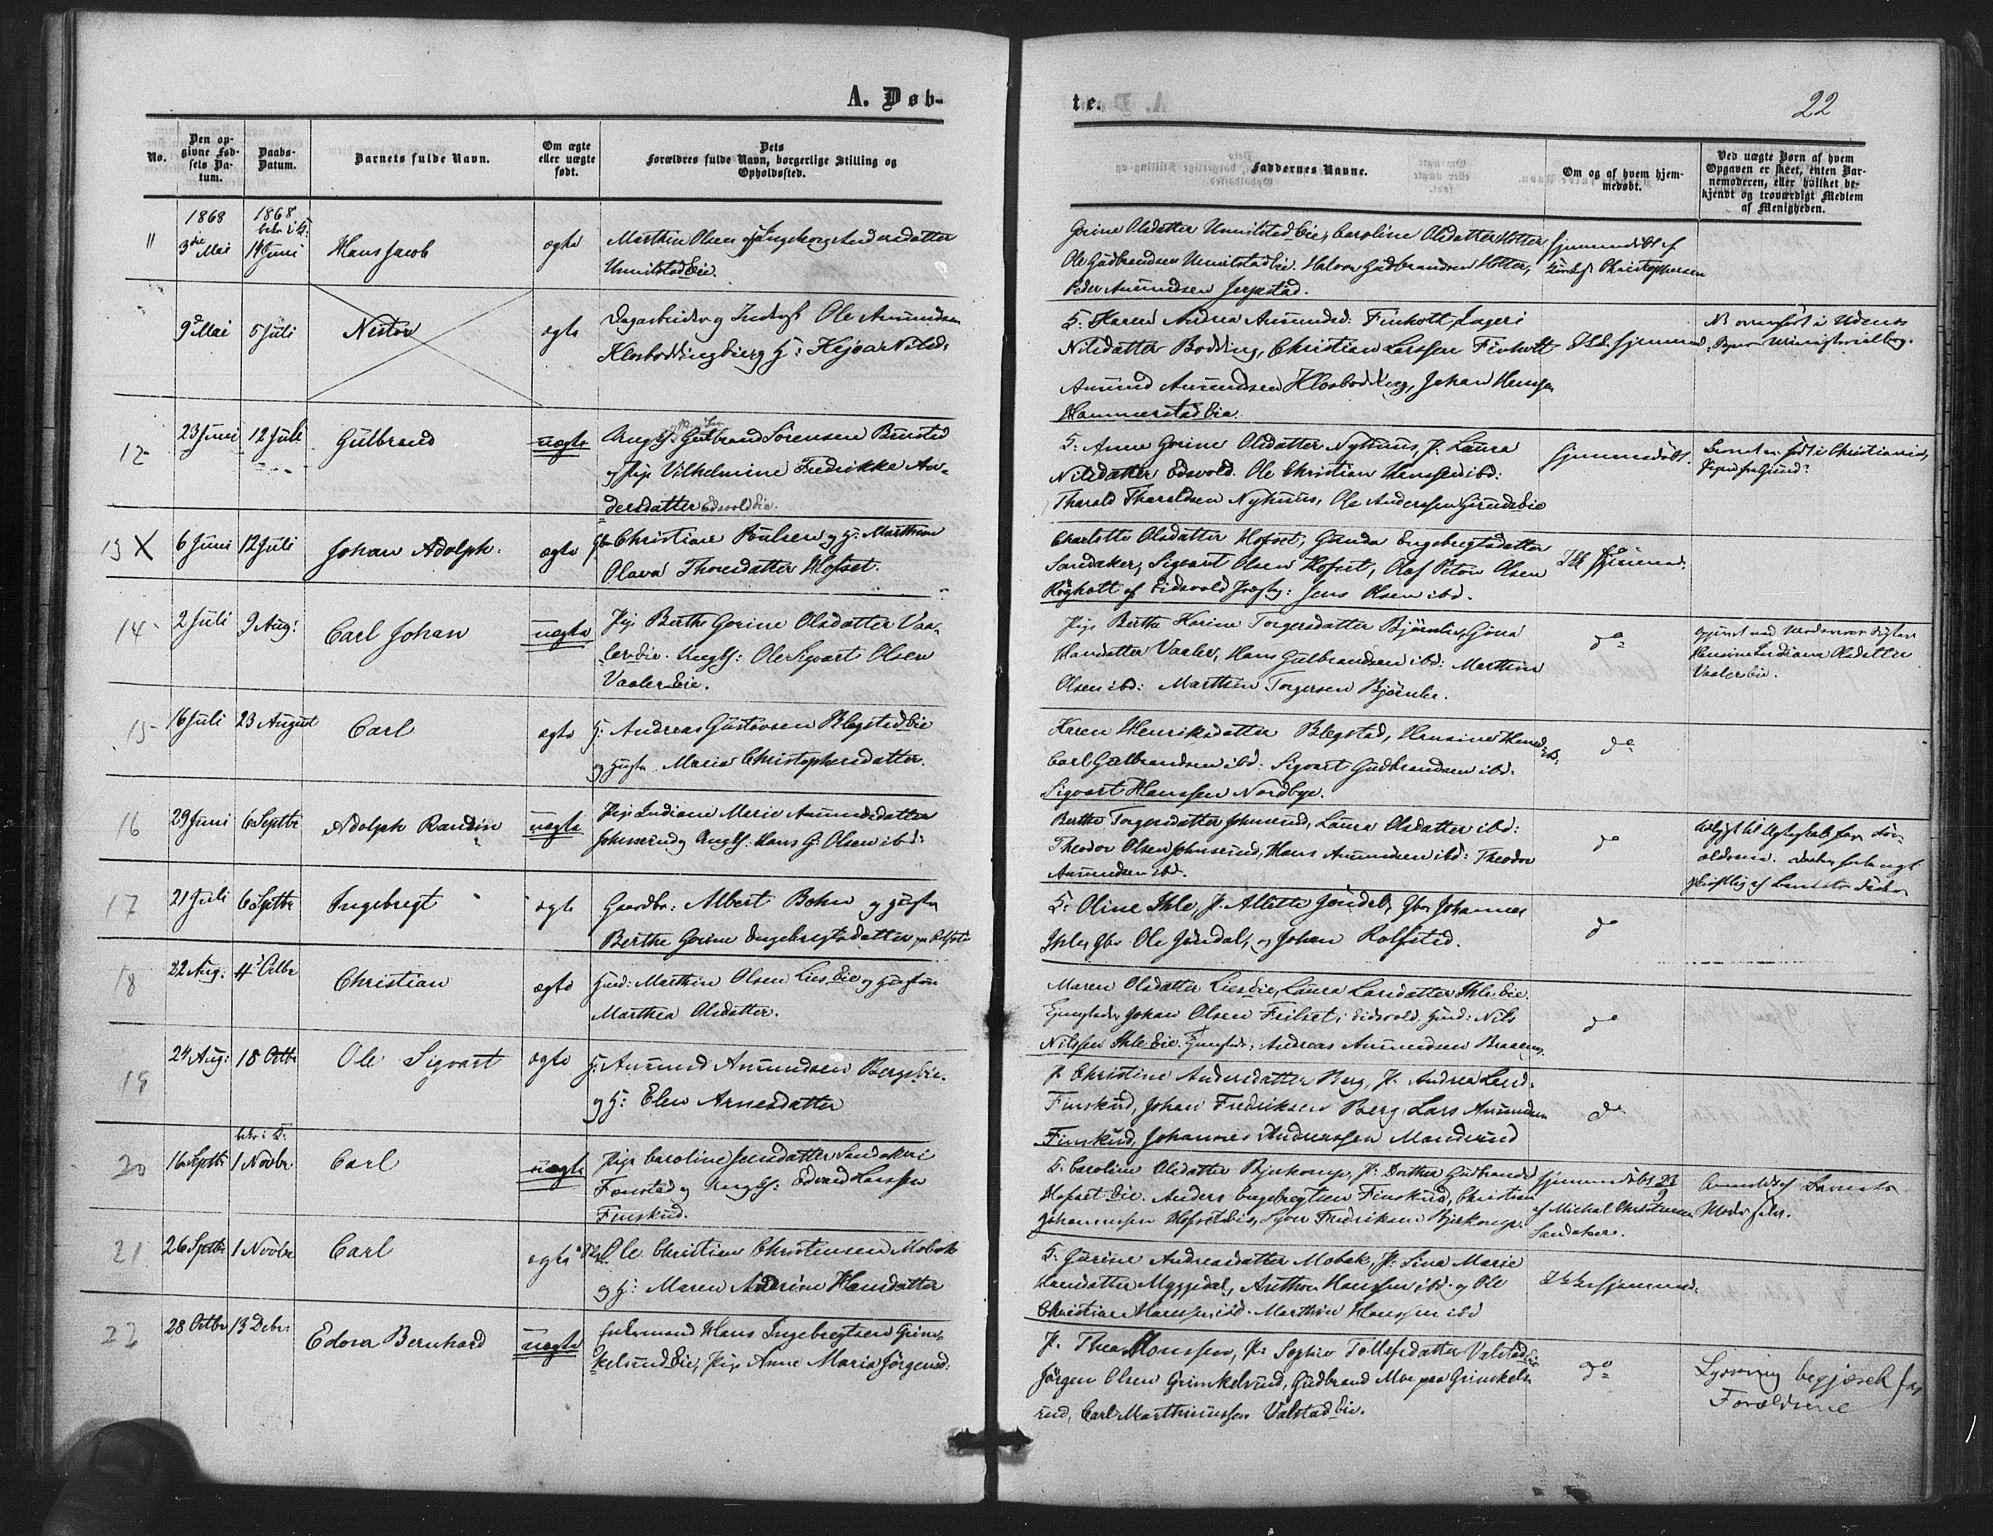 A. Døb-
te.
22
No.
Den op-
givne Fød-
sels Da-
tum.
Daabs-
Datum.
Barnets fulde Navn.
Om ægte
eller uægte
født.
Dets
Forældres fulde Navn, borgerlige Stilling og
Opholdssted.
Faddernes Navne.
Om og af hvem hjem-
medøbt.
Ved uægte Børn af hvem
Opgaven er skeet, enten Bar-
nemoderen, eller hvilket be-
kjendt og troværdigt Medlem
af Menigheden.
11
1868
3die Mai
1868
bekr i K:
14 Juni
Hans Jacob
ægte
Marthin Olsen og Ingeborg Andersdatter
Unnilstad Eie.
Gorine Olsdatter Unnilstad Eie, Caroline Olsdatter Holter
Ole Gudbrandsen Unnilstad Eie. Halvor Gudbrandsen Holter,
Peder Amundsen Jerpstad.
Hjemmedøbt af
Christophersen
9 Mai
5 Juli
Nestor
ægte
Dagarbeider og Inderst Ole Amundsen
Nilsd:
K: Karen Andrea Amundsd: Finholt, Ingeri
Nilsdatter Bodding, Christian Larssen Finholt
Amund Amundsen Johan
Hammerstad Eie.
Ikke hjemmed.
NB overført i Udenes
Byes Ministerialbog.
12
23 Juni
12 Juli
Gulbrand
uægte
Ungk. Gulbrand Sørensen Bunsted
og Pige Vilhelmine Fredrikke An-
dersdatter Edsvold Eie.
K: Anne Gorine Olsdatter Nyhuus, P. Laura
Nilsdatter Edsvold. Ole Christian Hansen ibd:
Tharald Tharaldsen Nyhuus, Ole Anderssen Grunds Eie
Hjemmedøbt.
Barnet er født i Christiania,
13 X
6 Juni
12 Juli
Johan Adolph.
ægte
Gbr Christian Poulsen og H: Marthine
Olava Thoresdatter Hofset.
Charlotte Olsdatter Hofset, Gunda Engebregtsdatter
Sandaker, Sigvart Olsen Hofset, Olaf Peter Olsen
Røgholt af Eidsvold Præstg: Jens Olsen ibd.
Ikk hjemmed.
14
2 Juli
9 Aug:
Carl Johan
uægte
Pige Berthe Gorine Olsdatter Vaa-
ler Eie. Ungk: Ole Sigvart Olsen
Vaaler Eie.
Pige Berthe Karine Torgersdatter Bjørnle, Gona
Hansdatter Vaaler, Hans Gulbrandsen ibd: Marthin
Olsen ibd: Marthin Torgersen Bjørnle.
do
Olsdatter
Vaaler Eie.
15
16 Juli
23 August
Carl
ægte
H: Andreas Gustavsen Blegstad Eie
og Hustr. Maria Christophersdatter.
Karen Henriksdatter Blegstad, Hansine
Carl Gulbrandsen ibd: Sigvart Gudbrandsen ibd.
Sigvart Hanssen Nordbye.
do
16
29 Juni
6 Septbr
Adolph Randin
uægte
Pige Indiane Marie Amundsdatter
Johnsrud og Ungk. Hans G: Olsen ibd:
Berthe Torgersdatter Johnsrud, Laura Olsdatter ibd:
Theodor Olsen Johnsrud, Hans Amundsen ibd: Theodor
Amundsen ibd.
do
17
21 Juli
6 Septbr
Ingebregt
ægte
Gaardbr: Albert Bohn og Hustru
Berthe Gorine Engebregtsdatter
K: Oline Ihle, P. Allette Jøndal, Gbr Johannes
Ihle, Gbr. Ole Jøndal, og Johan Rolfsted.
do
18
22 Aug:
4 Octbr
Christian
ægte
Husmd: Marthin Olsen Lies Eie og Hustru
Marthea Olsdatter.
Maren Olsdatter Lies Eie, Laura Larsdatter Ihle Eie.
Johan Olsen Feilset i Eidsvold, Husmd: Nils
Nilssen Ihle Eie. Andreas Amundsen
do
19
24 Aug:
18 Octbr
Ole Sigvart
ægte
H: Amund Amundsen Bergs Eie.
og H: Elen Arnesdatter
P. Christine Andersdatter Berg, P. Andrea Larsd:
Finskud, Johan Fredriksen Berg, Lars Amundsen
Finskud, Johannes Anderssen Manderud
do
20
16 Septbr
bekr i K:
1 Novbr
Carl
uægte
Pige Caroline Jensdatter Sandaker i
Fonstad og Ungk: Edvard Larssen
Finskud.
K. Caroline Olsdatter Bjerkomp, P: Dorthea Gudbrands
Hofset Eie. Anders Engebregtsen Finskud, Christian
Johannessen Hofset Eie, Syver Fredriksen Bjerkomp.
Hjemmedøbt 23/9
af Michal Christiansen
Sandaker.
Anmeldt af Barnets
Moder selv.
21
26 Septbr
1 Novbr
Carl
ægte
Ole Christian Christensen Mobæk
og H: Maren Andrine Hansdatter
K: Gurine Andreasdatter Mobæk, P: Lina Marie
Hansdatter Myggedal, Anthon Hanssen ibd. og Ole
Christian Hansen ibd. Marthin Hanssen ibd
Ikke hjemmed.
22
28 Octbr
13 Debr:
Edvar Bernhard
uægte
Enkemand Hans Ingebregtsen Grin-
kelsrud Eie, Pige Anne Maria Jørgensd:
P. Thea Hanssen, P: Sophie Tollefsdatter Valstad Eie
Jørgen Olsen Grinkelsrud, Gudbrand Moe paa Grinkels-
rud, Carl Marthinussen Valstad Eie.
do
Lysning begjæret for
Forældrene